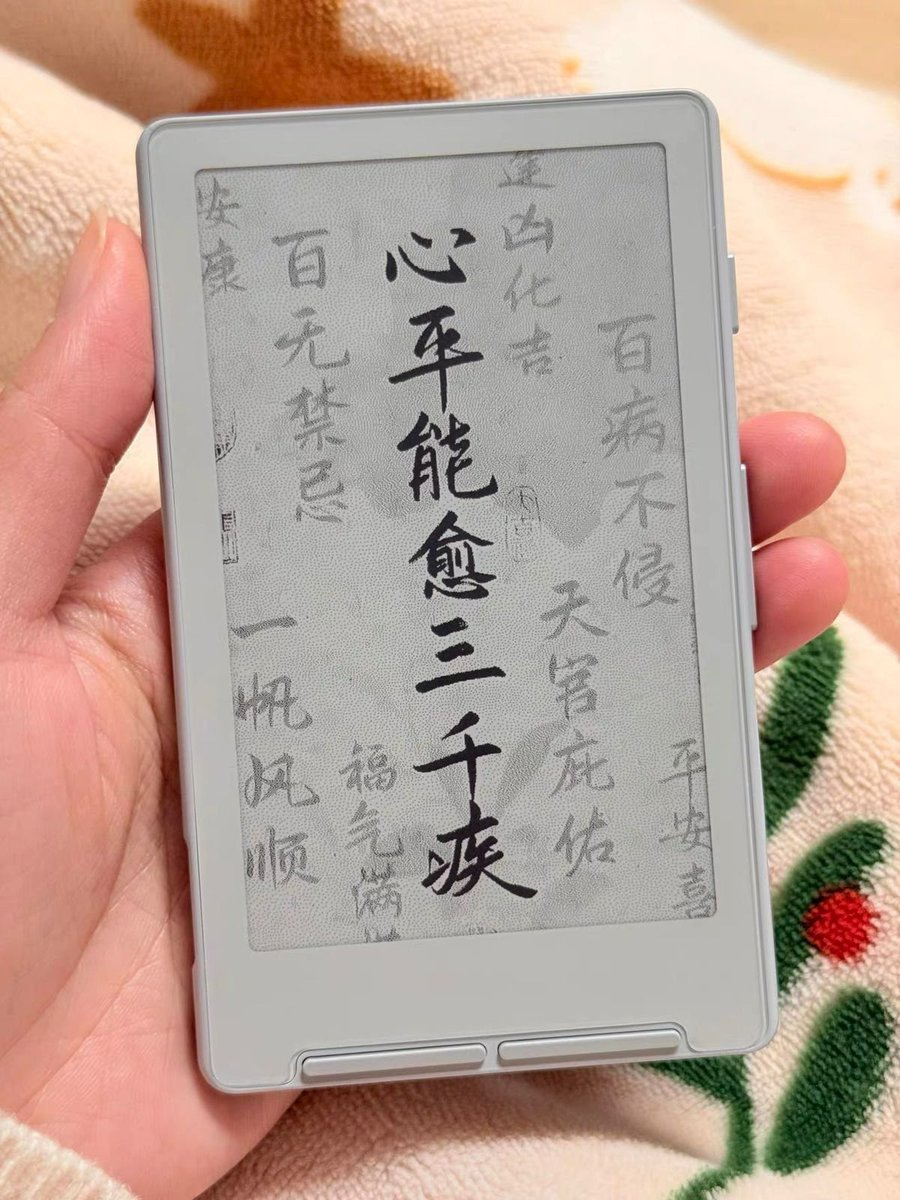 平安喜
百病不侵
天官庇佑
逢凶化吉
心平能愈三千疾
福气满
百无禁忌
一帆风顺
安康